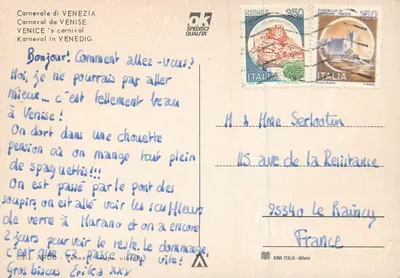 Carnevale di VENEZIA
Carnaval de VENISE
VENICE 's carnival
Karneval in VENEDIG
SPEDISCI
QUALITÀ
350
ITALIA
ITALIA
Bonjour! Comment allez-vous?
Moi, je ne pourrais pas aller
mieux... c'est tellement beau
à Venise!
On dort dans une chouette
pension où on mange tout plein
de spaguettis!!!
On est passé par le pont des
soupirs, on est allé voir les souffleurs
de verre à Murano et on a encore
2 jours pour voir le reste. Le dommage,
c'est que ça passe trop vite!
Gros bisous Erika xxx
M & Mme Serbottin
115 ave de la Résistance
93340 Le Raincy
France
KINA ITALIA - Milano